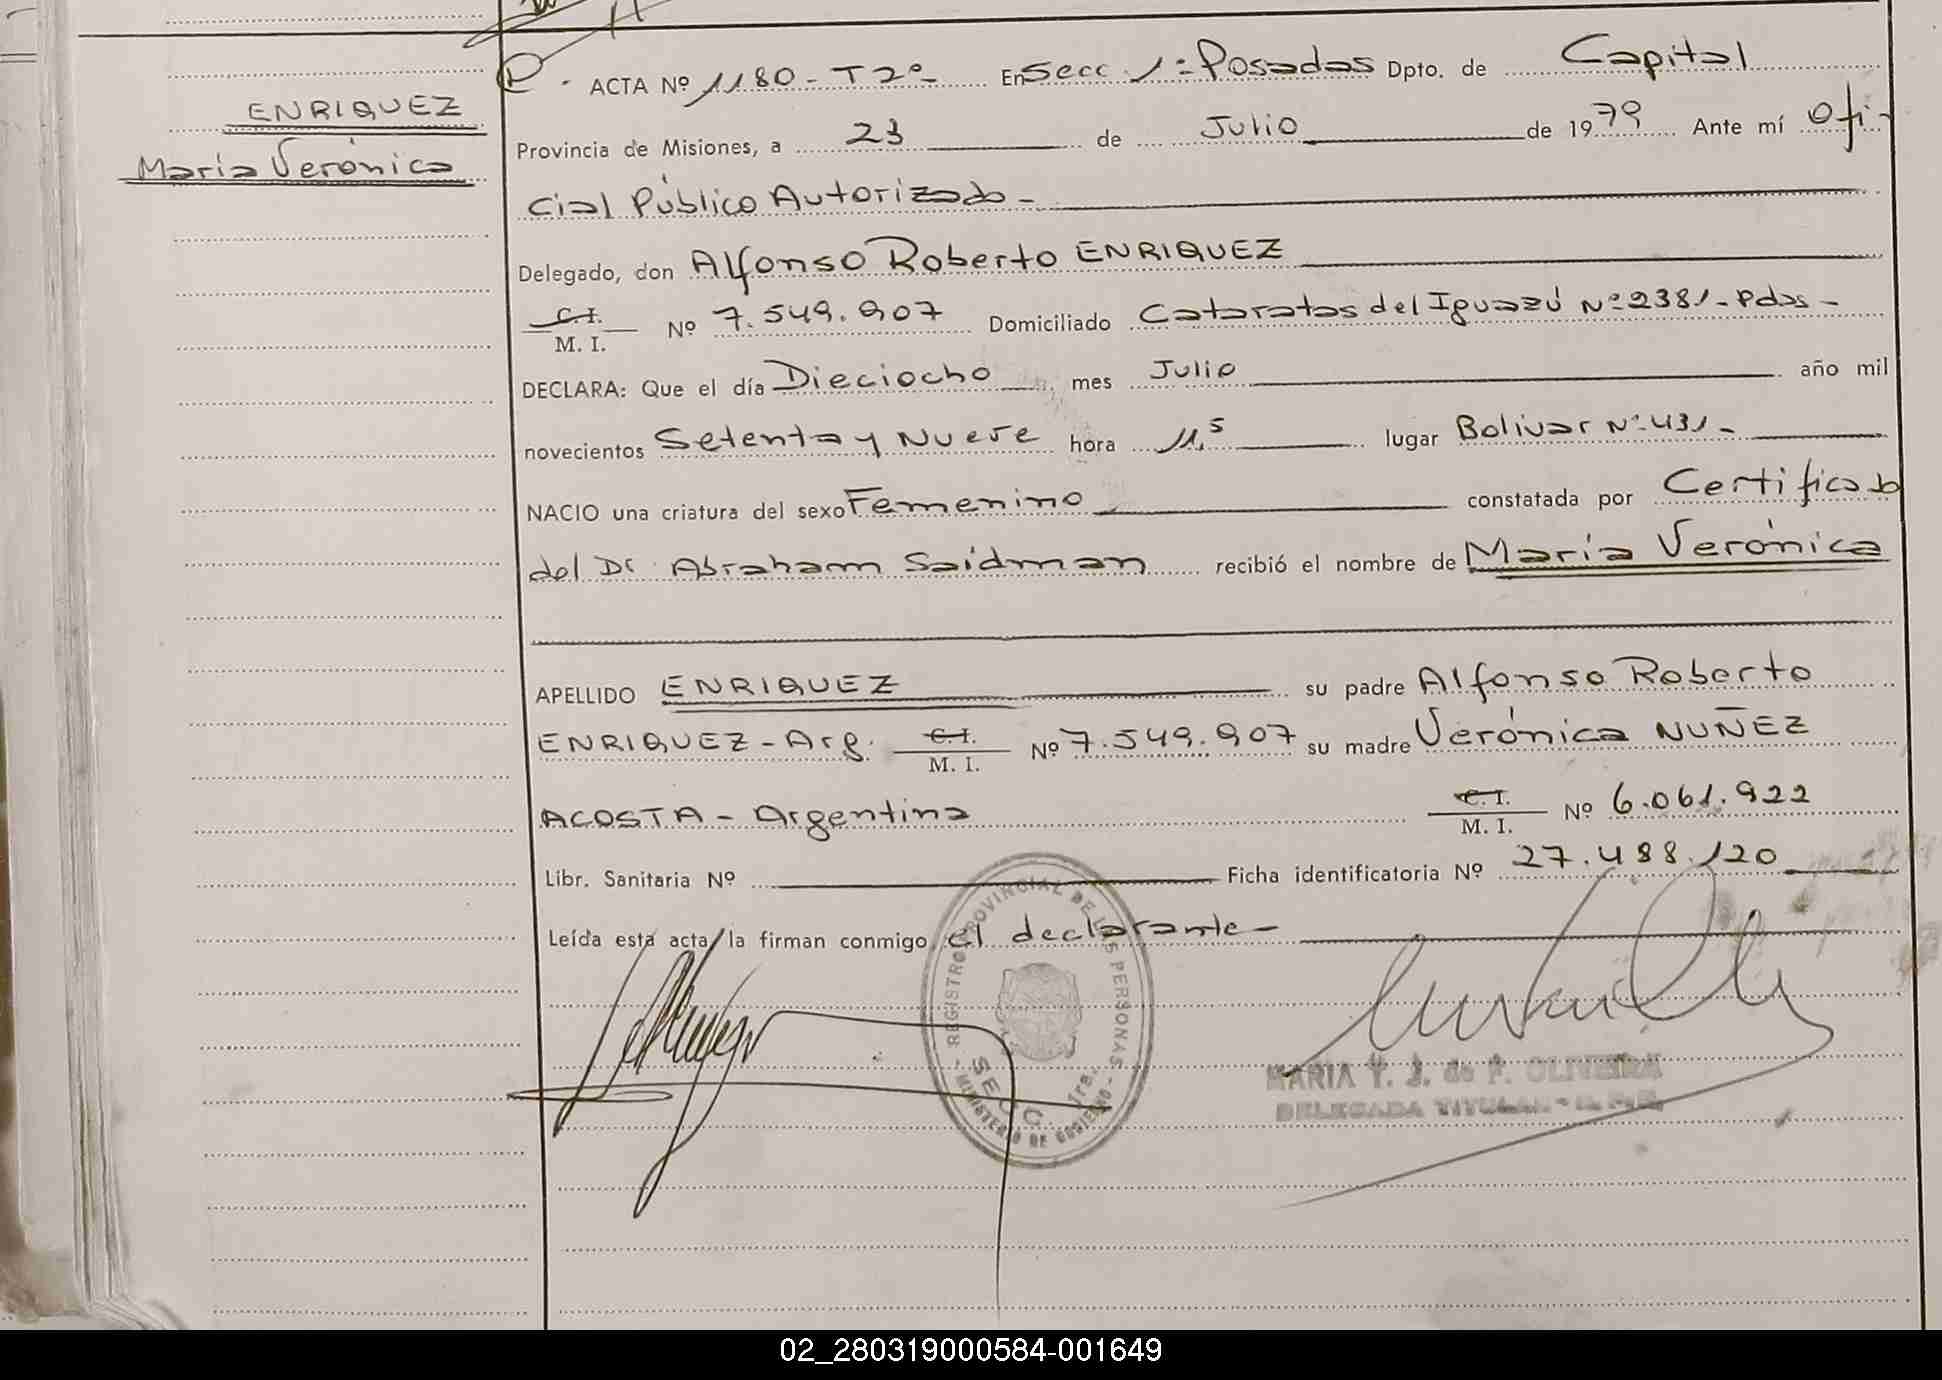 ENRIQUEZ
María Verónica
ACTA Nº 1180 - T2º - En Secc. 1ª Posadas Dpto. de Capital
Provincia de Misiones, a 23 de Julio de 1979 Ante mí Ofi-
cial Público Autorizado -
Delegado, don Alfonso Roberto ENRIQUEZ
C.I.
M. I. Nº 7.549.907 Domiciliado Cataratas del Iguazú Nº 2381 - Pdas -
DECLARA: Que el día Dieciocho mes Julio año mil
novecientos Setenta y Nueve hora 11,5 lugar Bolivar Nº 431 -
NACIO una criatura del sexo Femenino constatada por Certificado
del Dr. Abraham Saidman recibió el nombre de María Verónica
APELLIDO ENRIQUEZ su padre Alfonso Roberto
ENRIQUEZ - Arg. C.I. M. I. Nº 7.549.907 su madre Verónica NUÑEZ
ACOSTA - Argentina C.I. M. I. Nº 6.061.922
Libr. Sanitaria Nº Ficha identificatoria Nº 27.488.120
Leída esta acta, la firman conmigo el declarante -
REGISTRO PROVINCIAL DE LAS PERSONAS
SECC. 1ra.
MINISTERIO DE GOBIERNO
MARIA T. J. de P. OLIVEIRA
DELEGADA TITULAR -
02_280319000584-001649